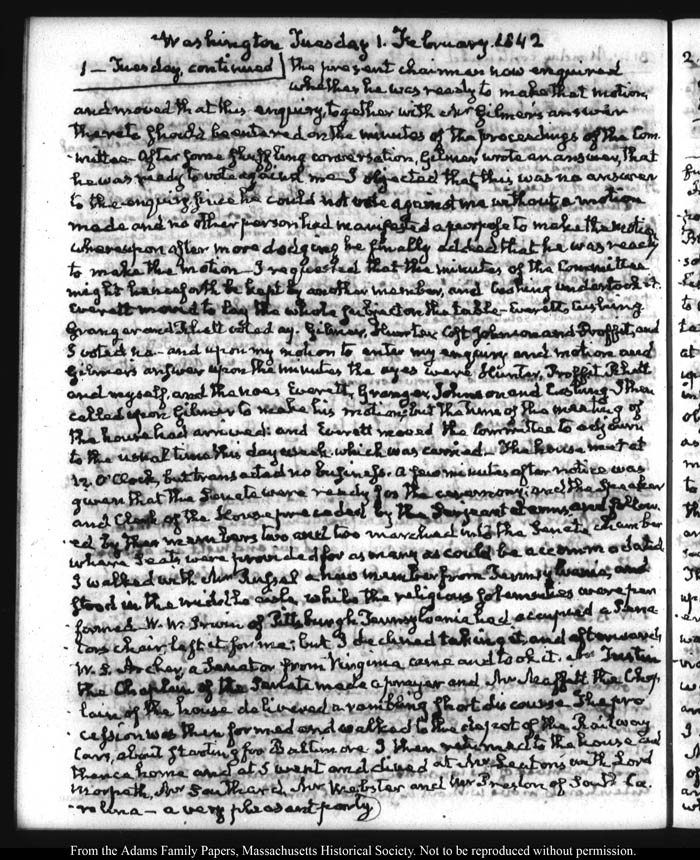 Washington Tuesday 1. February. 1842
1 — Tuesday, continued the present chairman now enquired
whether he was ready to make that motion,
and moved that this enquiry, together with Mr Gilmer's answer
thereto should be entered on the minutes of the proceedings of the Com-
-mittee. After some shuffling conversation, Gilmer wrote an answer, that
he was ready to vote against me. I objected that this was no answer
to the enquiry, since he could not vote against me without a motion
made and no other person had manifested a purpose to make the motion
whereupon after more dodging he finally added that he was ready
to make the motion — I requested that the minutes of the Committee
might henceforth be kept by another member, and Cushing undertook it.
Everett moved to lay the whole subject on the table — Everett, Cushing
Granger and Rhett voted ay. Gilmer, Hunter, Cost Johnson and Proffit, and
I voted no — and upon my motion to enter my enquiry and motion and
Gilmer's answer upon the minutes the ayes were Hunter, Proffit, Rhett
and myself, and the noes Everett, Granger, Johnson and Cushing. I then
called upon Gilmer to make his motion, but the time of the meeting of
the house had arrived; and Everett moved the Committee to adjourn
to the usual time this day week which was carried — The house met at
12. O'Clock, but transacted no business. A few minutes after notice was
given that the Senate were ready for the ceremony; and the Speaker
and Clerk of the House preceded by the Sergeant at arms, and follow-
-ed by the members two and two marched into the Senate chamber
where seats were provided for as many as could be accommodated.
I walked with Mr Russel a new member from Pennsylvania, and
stood in the middle aisle, while the religious solemnities were per-
-formed. W. W. Irwin of Pittsburgh Pennsylvania had occupied a Sena-
-tors chair; left it for me; but I declined taking it and afterwards
W. S. Archer, a Senator from Virginia came and took it. Mr Tustin
the Chaplain of the Senate made a prayer and Mr Maffitt the Chap-
lain of the house delivered a rambling short discourse. The pro-
-cession was then formed and walked to the depot of the Railway
Cars, about starting for Baltimore. I then returned to the house and
thence home and at 5 went and dined at Mr Seatons with Lord
Morpeth, Mr Southard, Mr Webster and Mr Preston of South Ca-
-rolina — a very pleasant party
2.
From the Adams Family Papers, Massachusetts Historical Society. Not to be reproduced without permission.